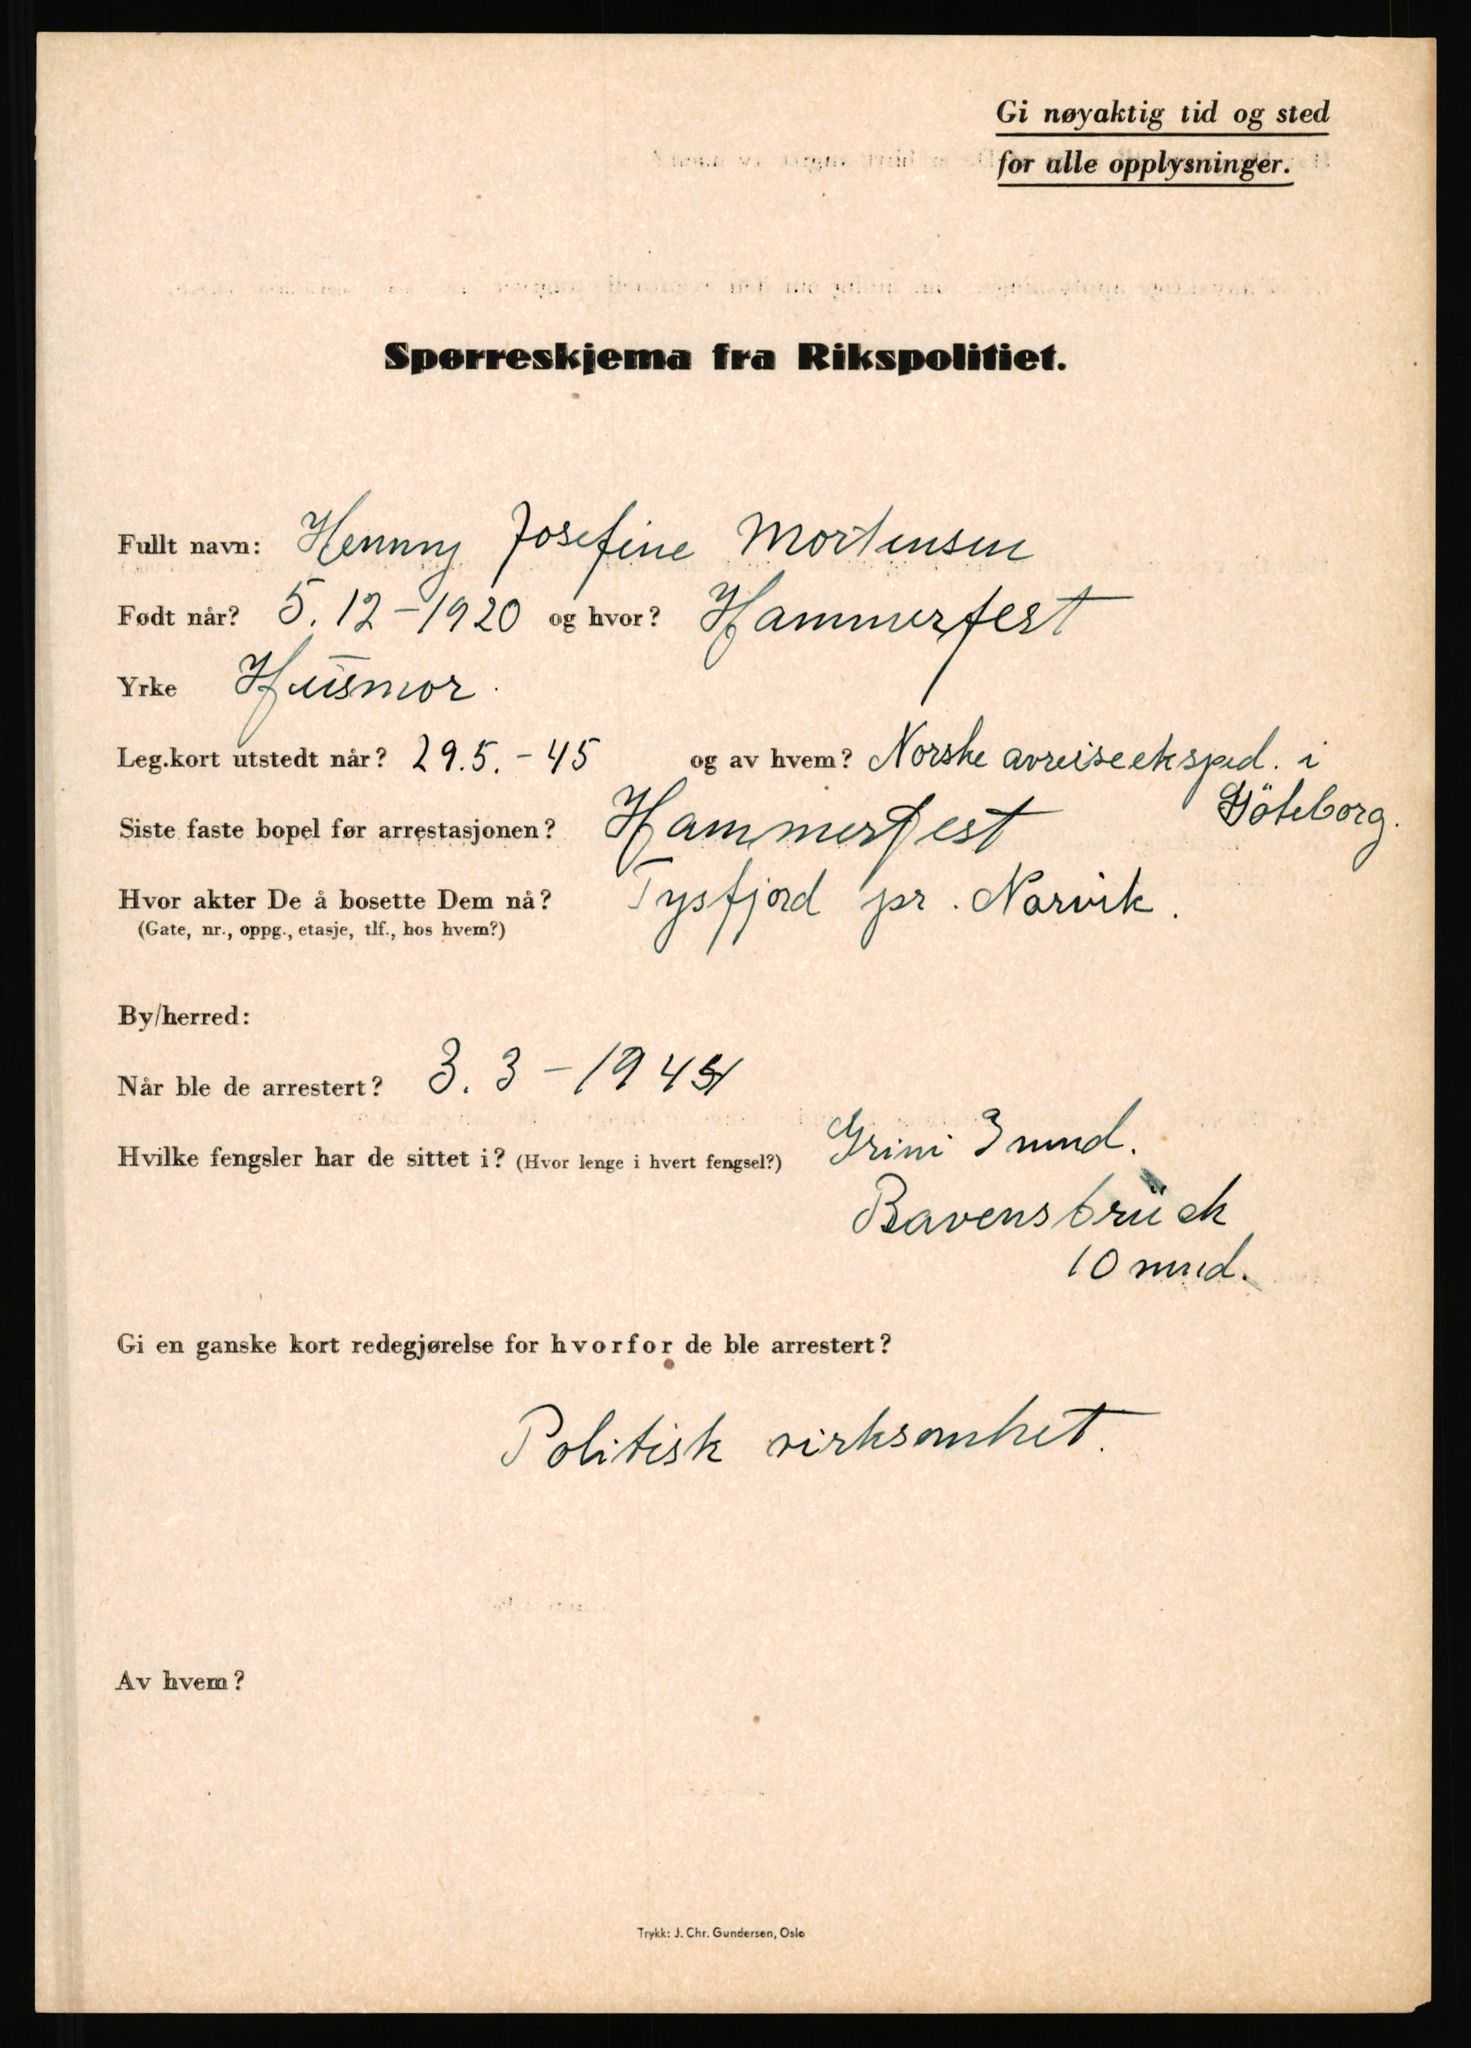 Gi nøyaktig tid og sted
for alle opplysninger.
Spørreskjema fra Rikspolitiet.
Fullt navn: Henny Josefine Mortensen
Født når? 5.12-1920 og hvor? Hammerfest
Yrke Husmor.
Leg.kort utstedt når? 29.5.-45 og av hvem? Norske avreiseeksped. i
Göteborg.
Siste faste bopel før arrestasjonen? Hammerfest
Hvor akter De å bosette Dem nå? Tysfjord pr. Narvik.
(Gate, nr., oppg., etasje, tlf., hos hvem?)
By/herred:
Når ble de arrestert? 3.3-1944
Hvilke fengsler har de sittet i? (Hvor lenge i hvert fengsel?) Grini 3 mnd.
Ravensbrück
10 mnd.
Gi en ganske kort redegjørelse for hvorfor de ble arrestert?
Politisk virksomhet.
Av hvem?
Trykk: J. Chr. Gundersen, Oslo